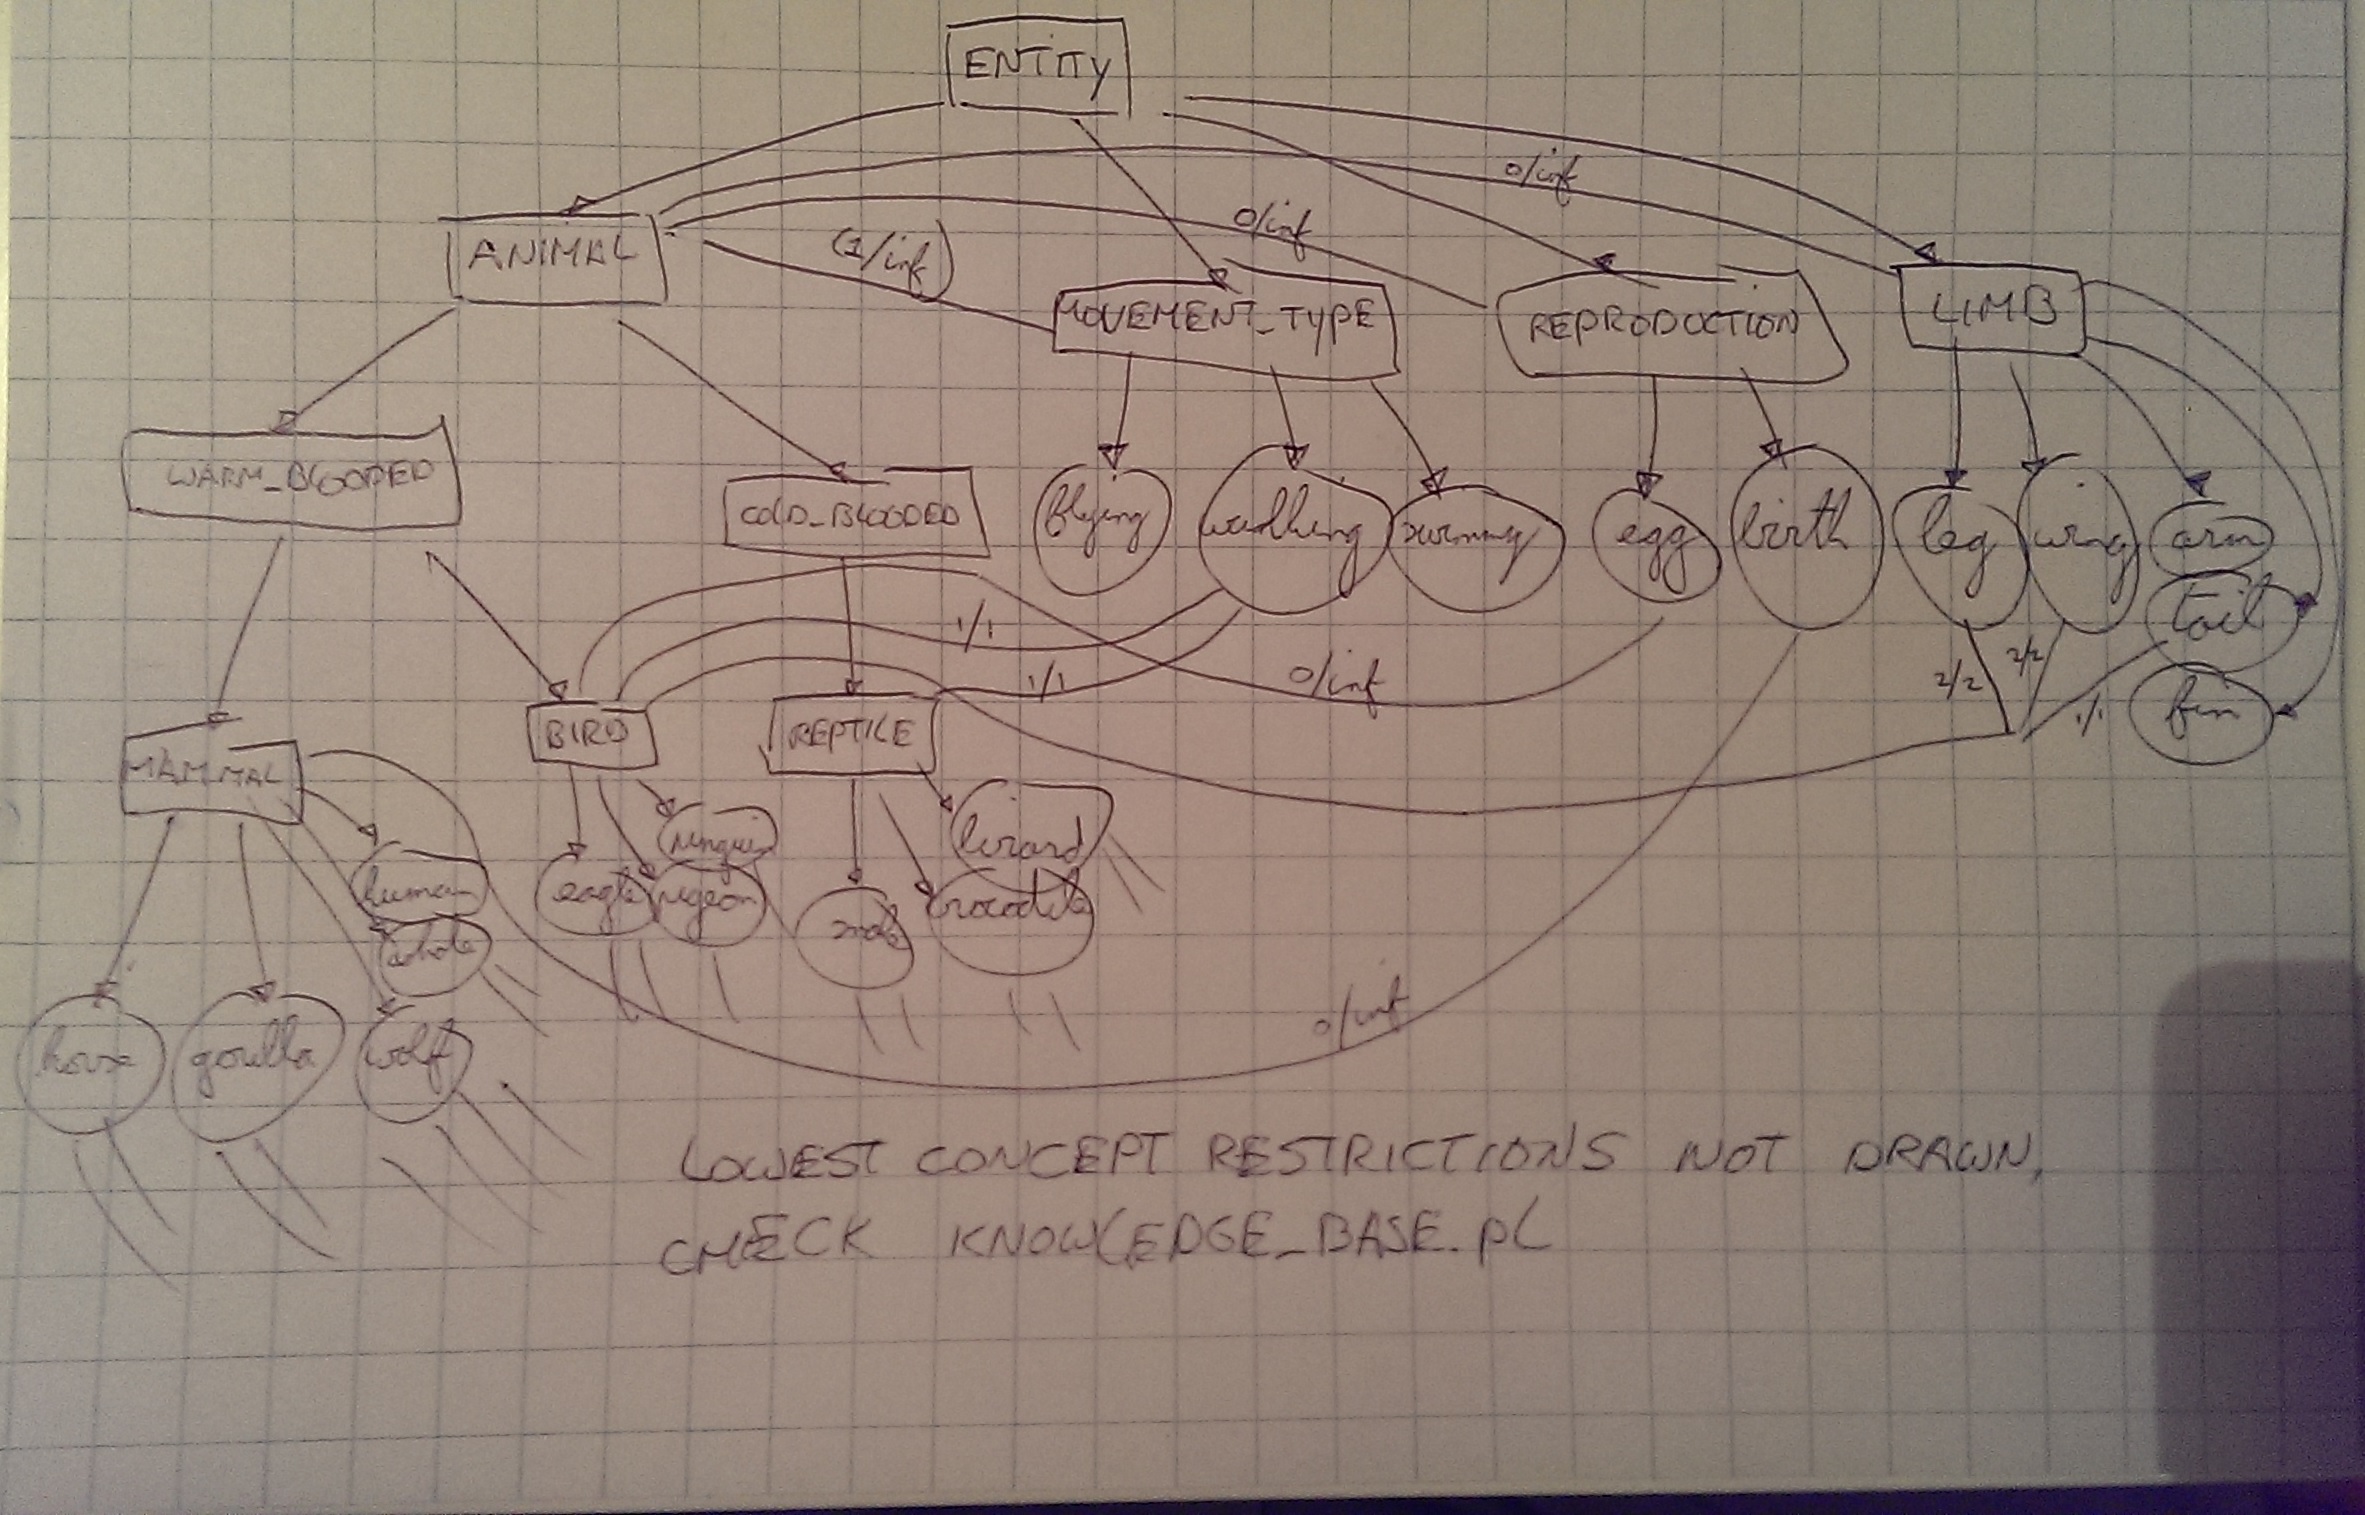 ENTITY
0/inf
0/inf
(1/inf)
ANIMAL
MOVEMENT_TYPE
REPRODUCTION
LIMB
WARM_BLOODED
COLD_BLOODED
flying
walking
egg
birth
leg
wing
arm
tail
fin
1/1
1/1
0/inf
2/2
2/2
1/1
MAMMAL
BIRD
REPTILE
human
whale
eagle
pigeon
lizard
crocodile
horse
gorilla
wolf
0/inf
LOWEST CONCEPT RESTRICTIONS NOT DRAWN,
CHECK KNOWLEDGE_BASE.pL